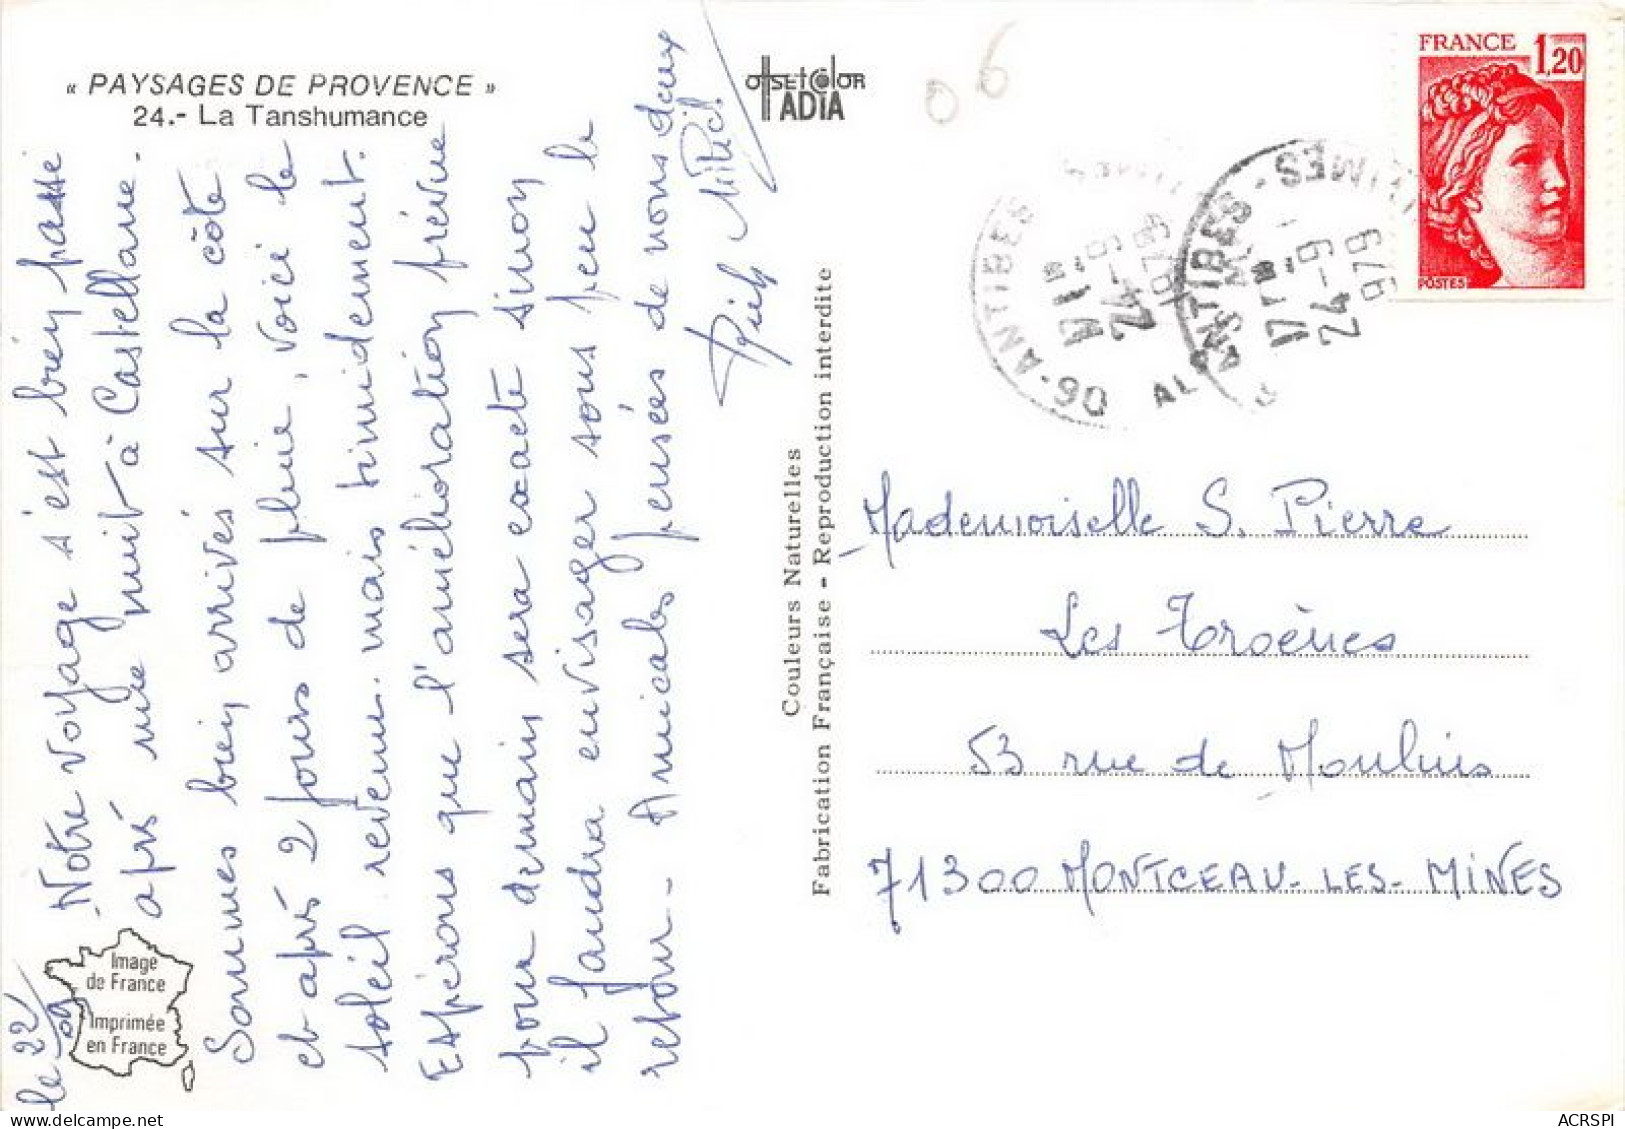 « PAYSAGES DE PROVENCE »
24.- La Tanshumance
le 22/09
Notre voyage s'est bien passé
après une nuit à Castellane.
Sommes bien arrivés sur la côte
et après 2 jours de pluie, voici le
soleil revenu mais timidement.
Espérons que l'amélioration prévue
pour demain sera exacte sinon
il faudra envisager sous peu le
retour - Amicales pensées de nous deux
Image
de France
Imprimée
en France
OFFSET COLOR
ADIA
Couleurs Naturelles
Fabrication Française - Reproduction interdite
06
FRANCE 1,20
POSTES
06-ANTIBES
17H
24-9
1979
ANTIBES
17H
24-9
979
Mademoiselle S. Pierre
Les Troènes
53 rue de Moulins
71300 MONTCEAU-LES-MINES
ACRSPI